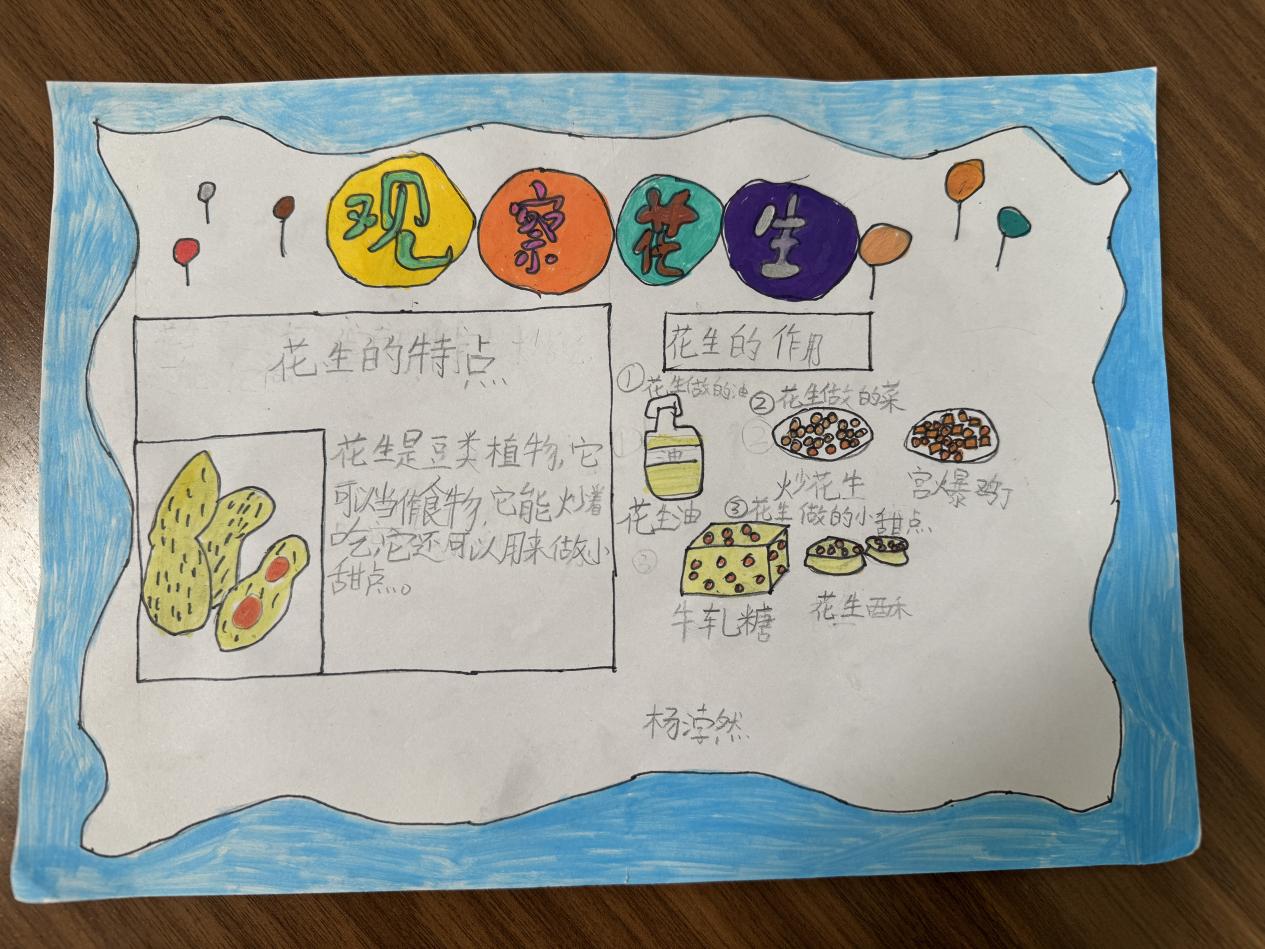 观察花生
花生的特点
花生是豆类植物,它
可以当作食物,它能炒着
吃,它还可以用来做小
甜点。
花生的作用
①花生做的油
油
花生油
②花生做的菜
炒花生
宫爆鸡丁
③花生做的小甜点
牛轧糖
花生酥
杨浡然